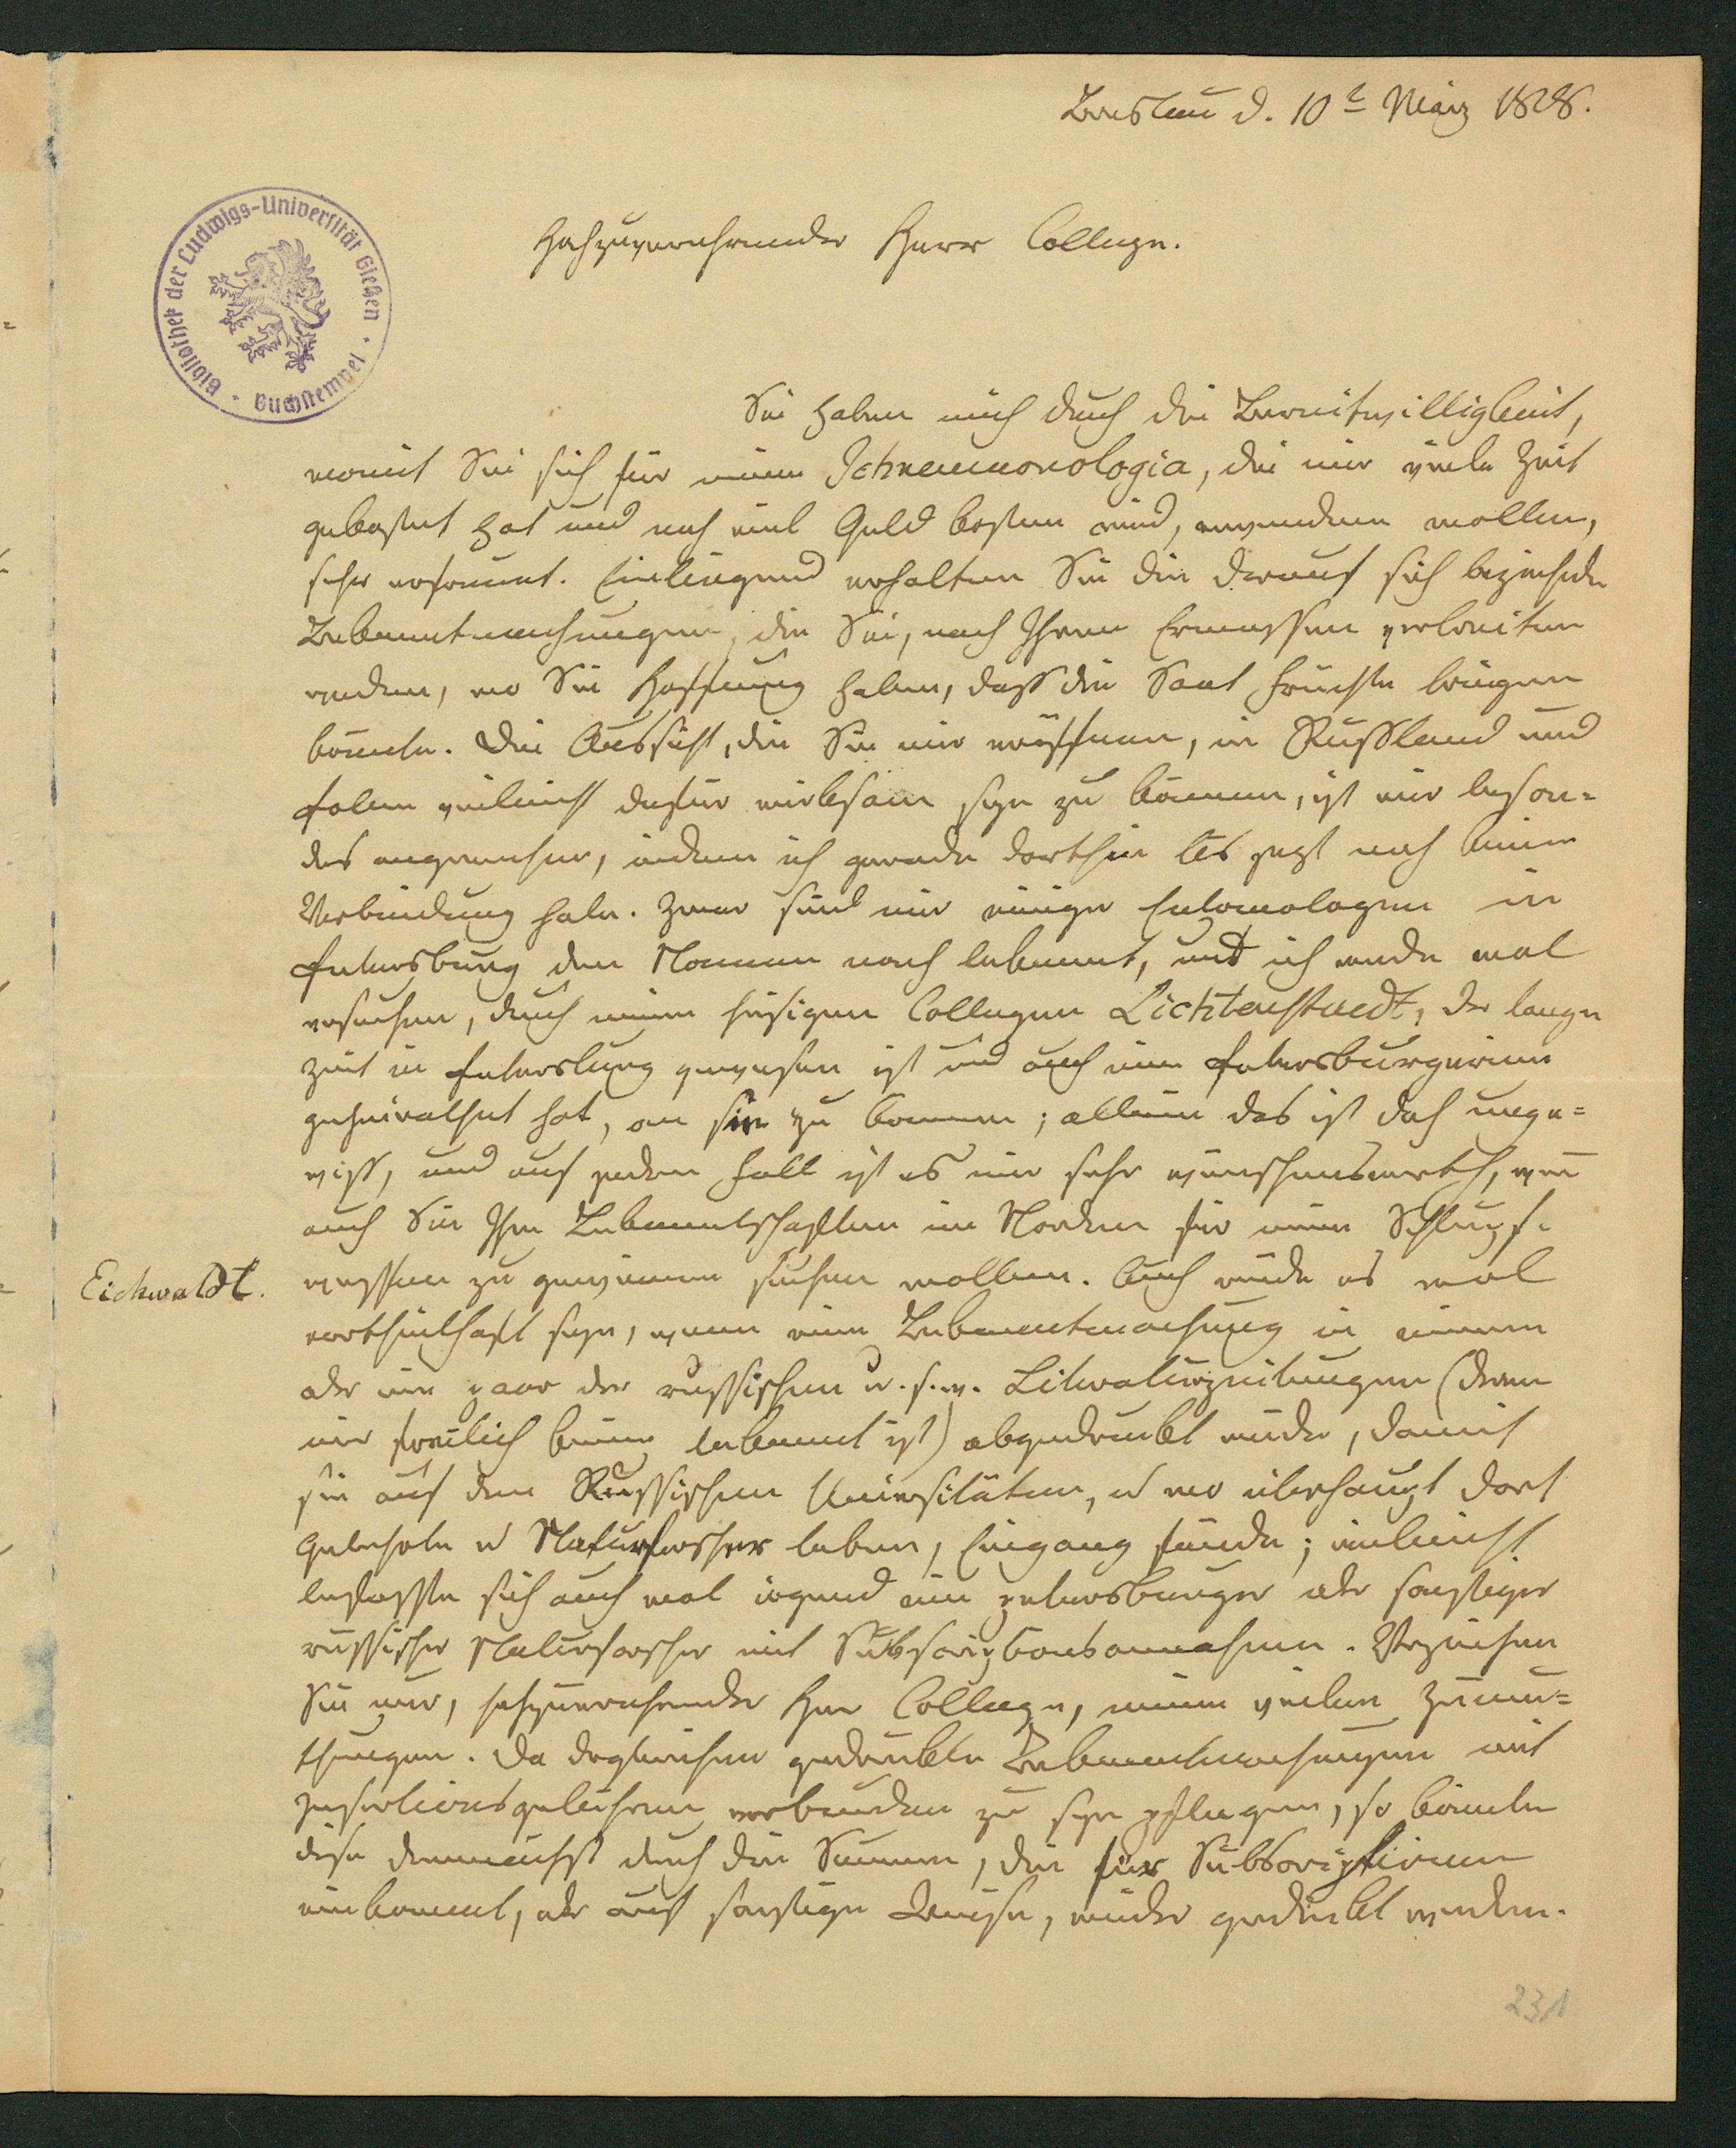 Breslau d. 10t März 1828.
Bibliothek der Ludwigs-Universität Gießen · Buchstempel ·
Hochzuverehrender Herr College.
Sie haben mich durch die Bereitwilligkeit,
womit Sie sich für meine Ichneumonologia, die mir viele Zeit
gekostet hat und noch viel Geld kosten wird, verwenden wollen,
sehr erfreuet. Einliegend erhalten Sie die darauf sich beziehende
Bekanntmachungen, die Sie, nach Ihrem Ermessen verbreiten
werden, wo Sie Hoffnung haben, dass die Saat Früchte bringen
könnte. Die Aussicht, die Sie mir eröffnen, in Russland und
Polen vielleicht dafür wirksam seyn zu können, ist mir beson-
ders angenehm, indem ich gerade dorthin bis jezt noch keine
Verbindung habe. Zwar sind mir einige Entomologen in
Petersburg dem Namen nach bekannt, und ich werde mal
versuchen, durch meinen hiesigen Collegen Lichtenstaedt, der lange
Zeit in Petersburg gewesen ist und auch eine Petersburgerinn
geheirathet hat, an sie zu kommen; allein das ist doch unge-
wiss, und auf jeden Fall ist es mir sehr wünschenswerth, wenn
auch Sie Ihre Bekanntschaften im Norden für meine Schlupf-
Eichwaldt.
wespen zu gewinnen suchen wollen. Auch würde es wol
vortheilhaft seyn, wenn eine Bekanntmachung in einem
oder ein paar der russischen u. s. w. Literaturzeitungen (deren
mir freilich keine bekannt ist) abgedruckt würde, damit
sie auf den Russischen Universitäten, u wo überhaupt dort
Gelehrte u Naturforscher leben, Eingang fände; vielleicht
befasste sich auch wol irgend ein petersburger oder sonstiger
russischer Naturforscher mit Subscriptionsannahmen. Verzeihen
Sie nur, hochzuverehrender Herr College, meine vielen Zumu-
thungen. Da dergleichen gedruckte Bekanntmachungen mit
Insertionsgebühren verbunden zu seyn pflegen, so könnten
diese demnächst durch die Summe, die für Subscriptionen
einkommt, oder auf sonstige Weise, wieder gedeckt werden.
231